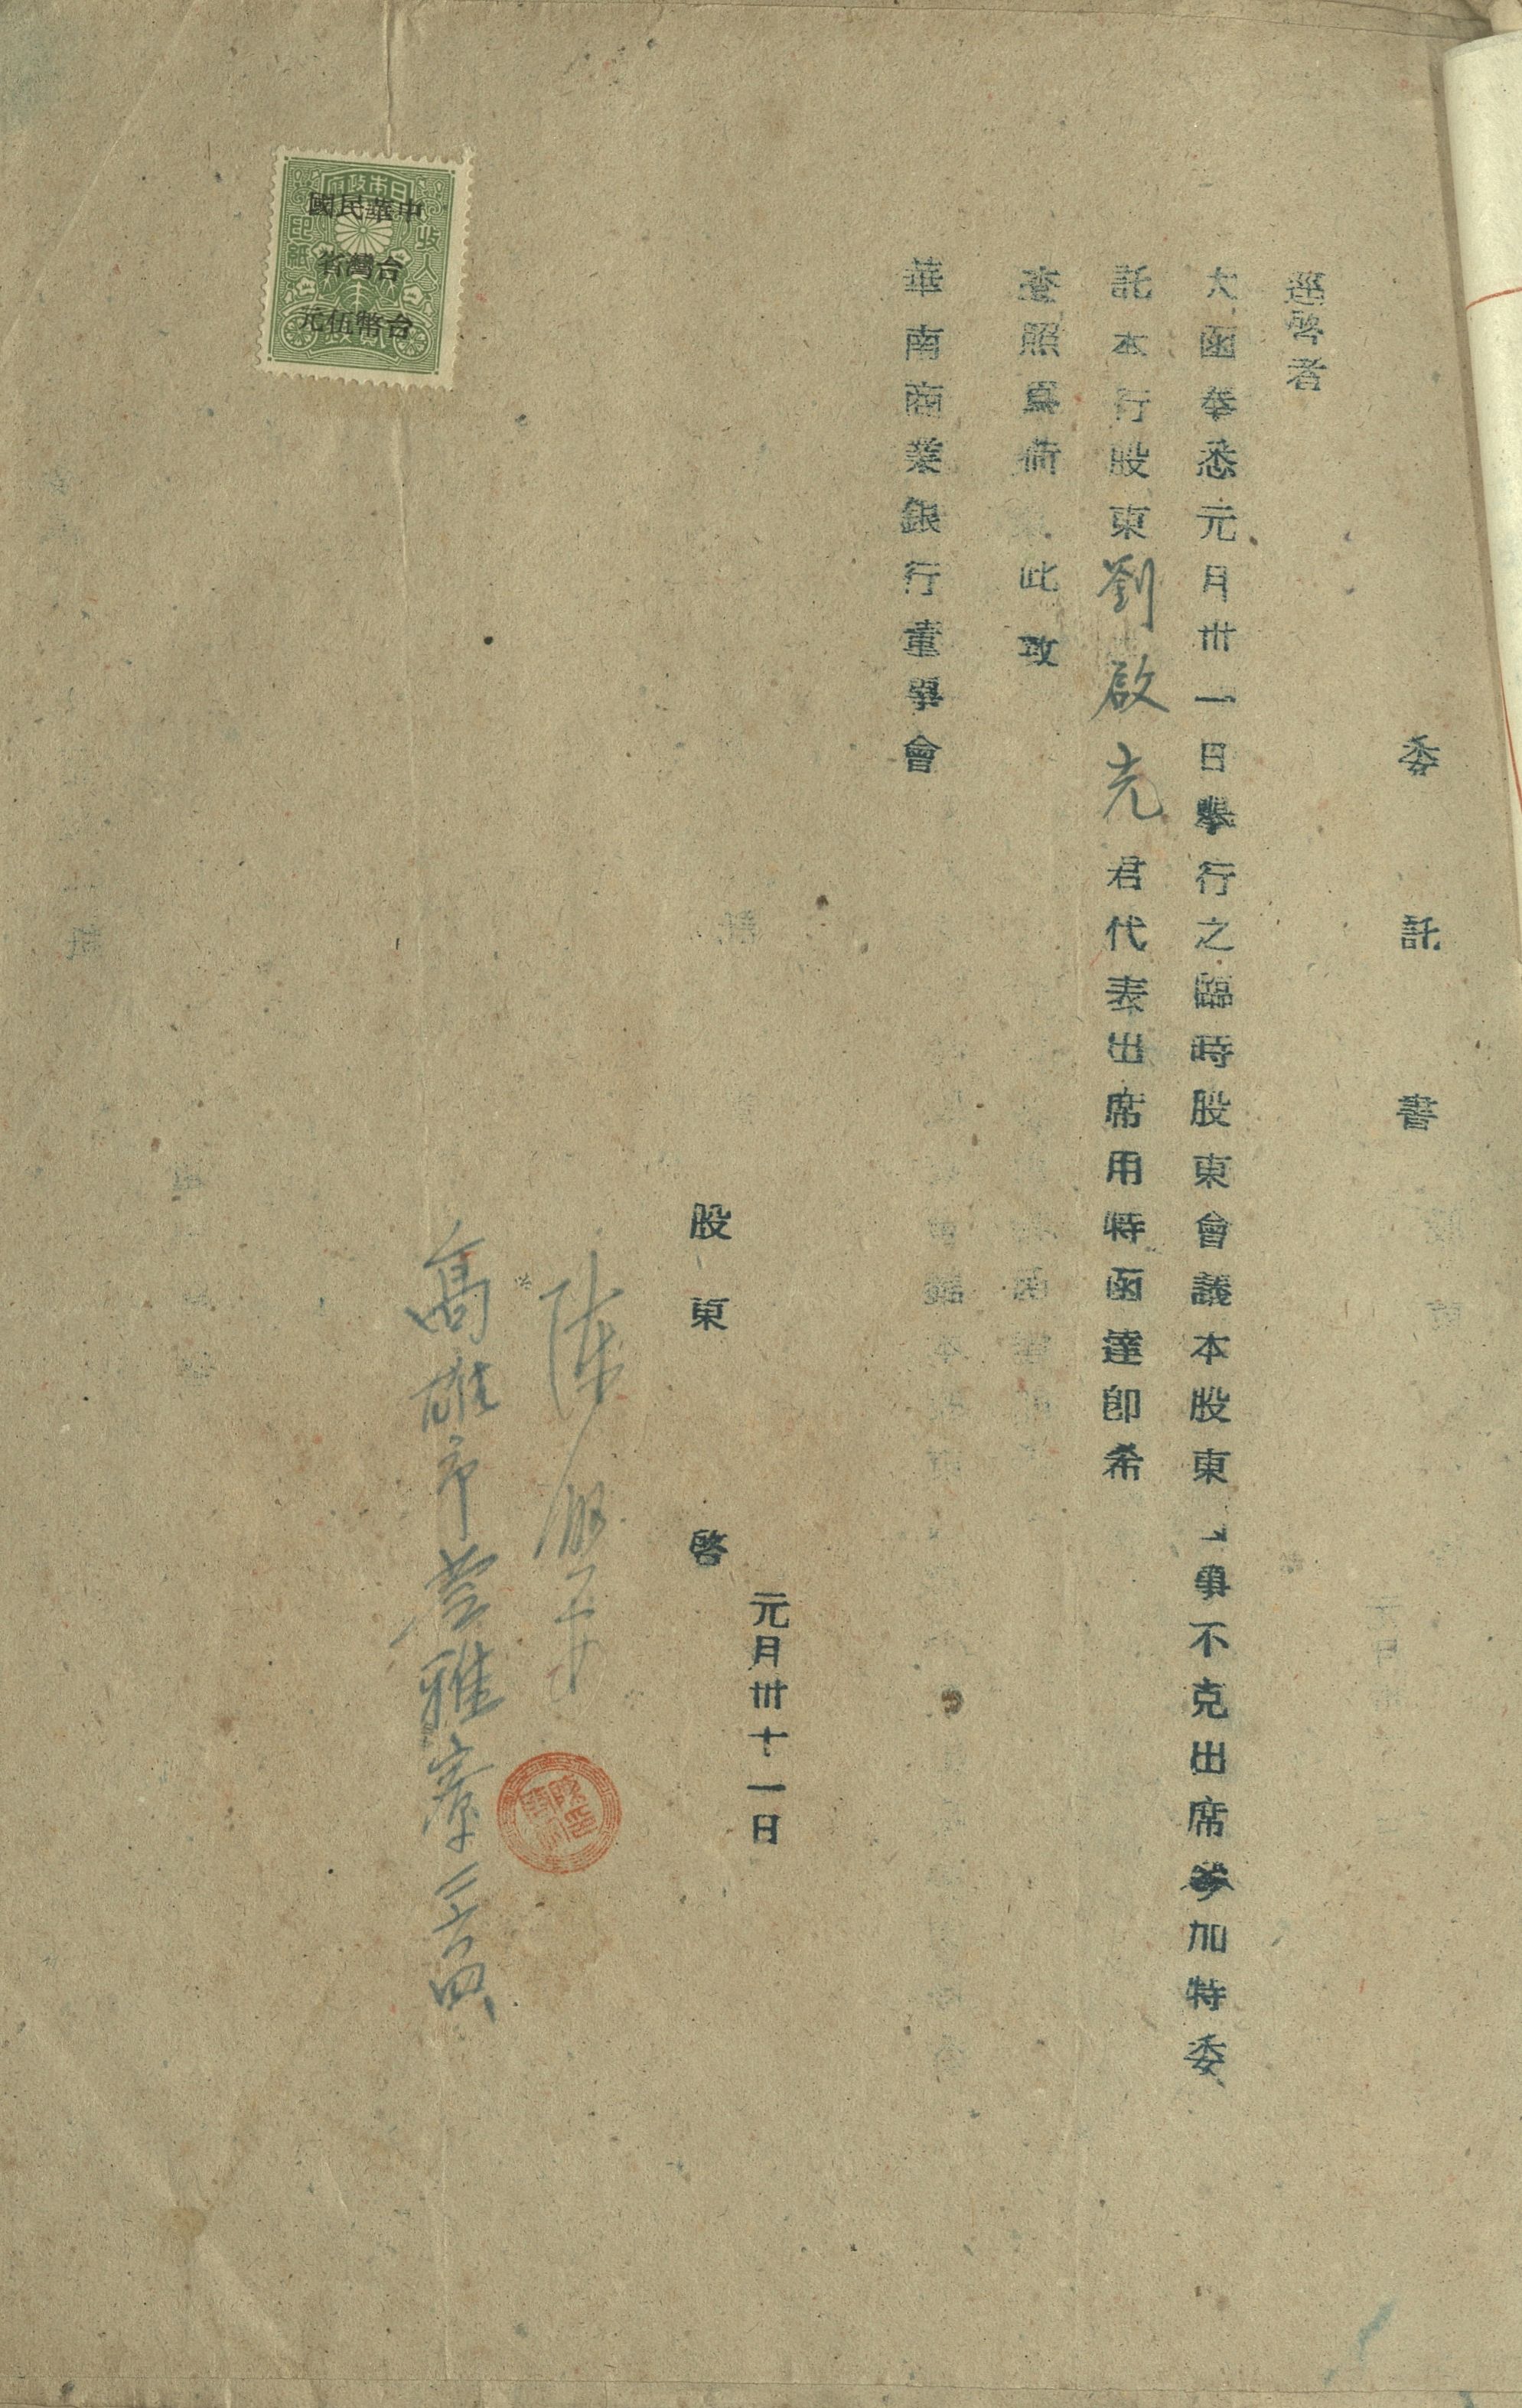 委託書
逕啓者
大函奉悉元月卅一日舉行之臨時股東會議本股東事不克出席參加特委
託本行股東劉啟光君代表出席用特函達即希
查照爲荷此致
華南商業銀行董事會
元月卅十一日
股東啓
陳
高雄市苓雅寮二六四
日本政府
收入印紙
中華民國
台灣省
台幣伍元